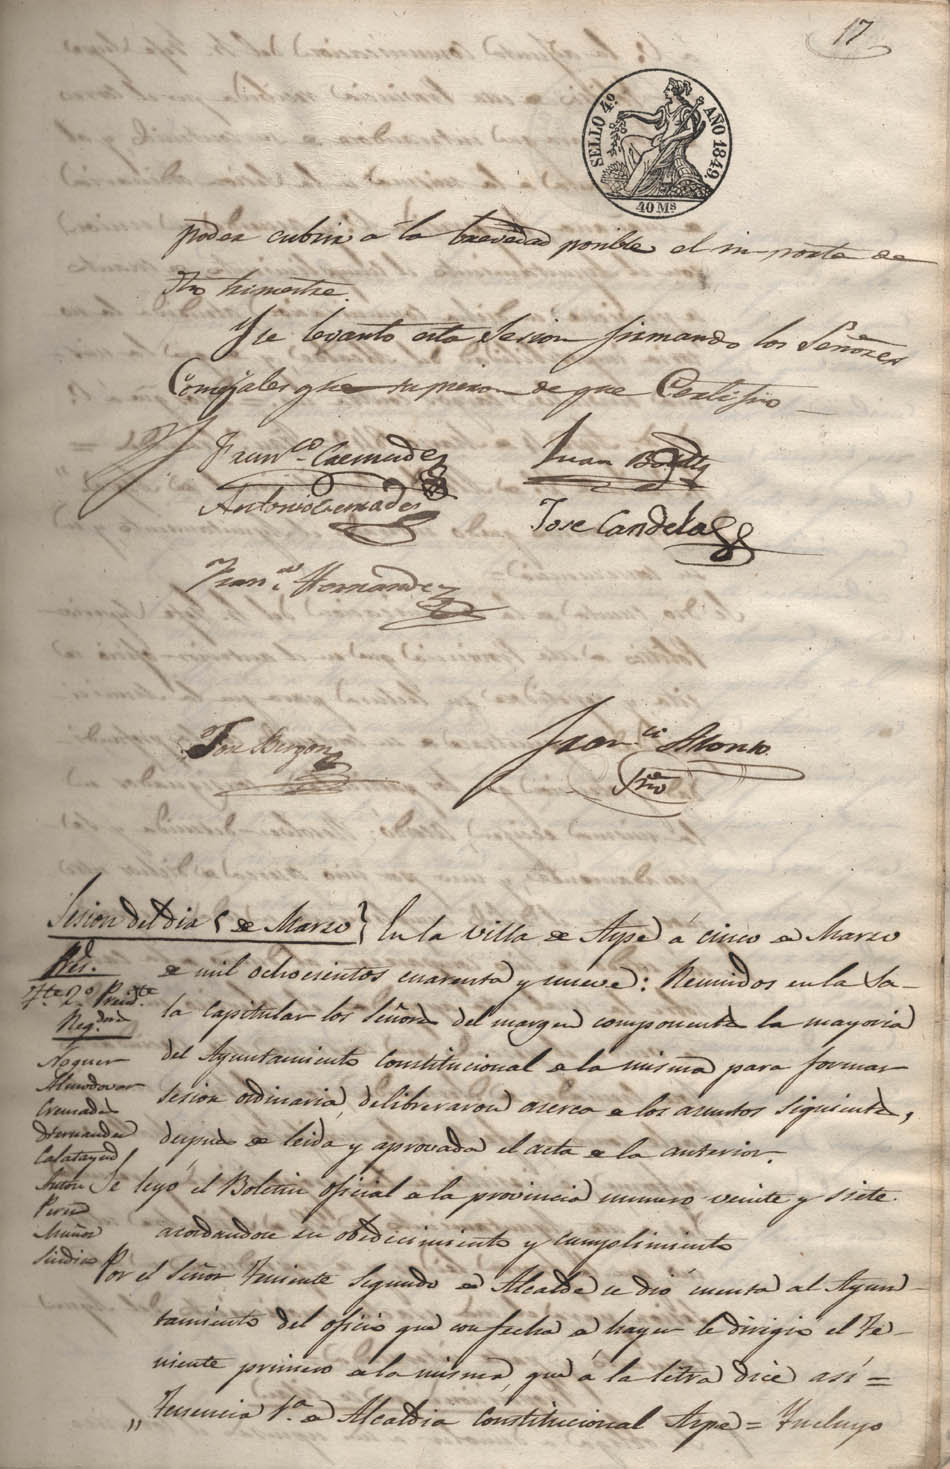 17
SELLO 4º AÑO 1849.
40 Ms
poder cubrir á la brevedad posible el importe de
dho trimestre.
Y se levanto esta Sesion firmando los Señores
Concejales que supieron de que Certifico
Franco. Cremades Juan Botella
Antonio Cremades Jose Candela
Hernandez
Jose
Franco. Alonso
Srio
Sesion del dia 5 de Marzo En la villa de Aspe á cinco de Marzo
de mil ochocientos cuarenta y nueve: Reunidos en la Sa-
la capitular los Señores del margen componentes la mayoria
del Ayuntamiento constitucional de la misma para formar
sesion ordinaria, deliberaron acerca de los asuntos siguientes,
despues de leida y aprovada el acta de la anterior.
Se leyó el Boletin oficial de la provincia numero veinte y siete.
acordandose su obedecimiento y cumplimiento
Por el Señor Teniente Segundo de Alcalde se dió cuenta al Ayun-
tamiento del oficio que con fecha de hayer le dirigio el Te-
niente primero de la misma, que á la letra dice así=
„Tenencia 1.a de Alcaldia constitucional Aspe= Incluyo
Tte 2º Presidte
Regdores
Noguer
Almodovar
Cremades
Hernandez
Calatayud
Anton
Perez
Muñoz
Sindico